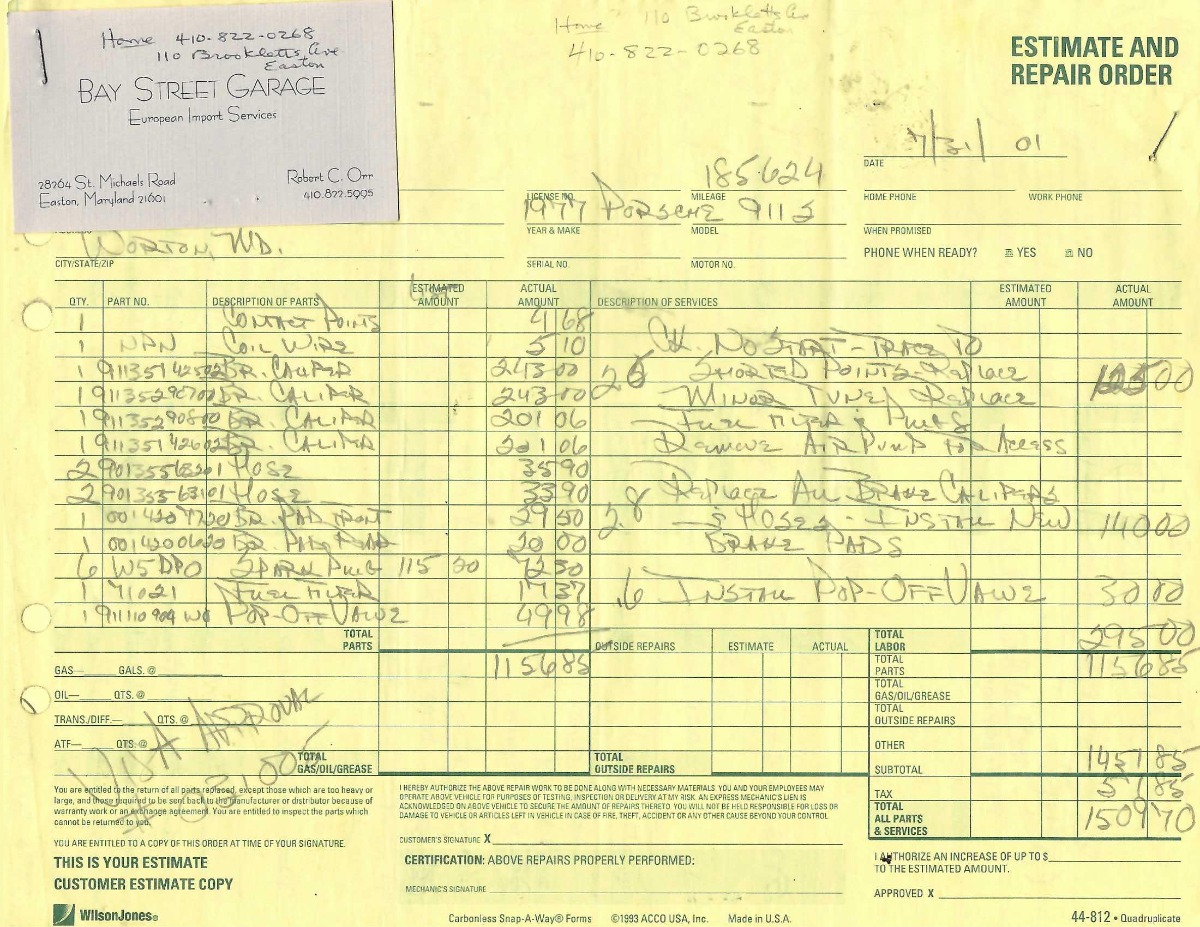 Home 410-822-0268
110 Brookletts Ave
Easton
BAY STREET GARAGE
European Import Services
28264 St. Michaels Road
Easton, Maryland 21601
Robert C. Orr
410.822.5995
Home 110 Brookletts Av
Easton
410-822-0268
ESTIMATE AND
REPAIR ORDER
7/31/01
DATE
185624
LICENSE NO. MILEAGE HOME PHONE WORK PHONE
1977 PORSCHE 911S
YEAR & MAKE MODEL WHEN PROMISED
WORTON, MD.
PHONE WHEN READY? YES NO
CITY/STATE/ZIP SERIAL NO. MOTOR NO.
QTY. PART NO. DESCRIPTION OF PARTS ESTIMATED AMOUNT ACTUAL AMOUNT DESCRIPTION OF SERVICES ESTIMATED AMOUNT ACTUAL AMOUNT
1 CONTACT POINTS 4 68
1 NPN COIL WIRE 5 10 CK. NO START - TRACE TO
1 BR. CALIPER 243 00 SHORTED POINTS REPLACE 125 00
1 BR. CALIPER 243 00 MINOR TUNE, REPLACE
1 91135290800 BR. CALIPER 201 06 FUEL FILTER & PLUGS
1 91135142602 BR. CALIPER 201 06 REMOVE AIR PUMP FOR ACCESS
2 HOSE 35 90
2 90135563101 HOSE 33 90 2.8 REPLACE ALL BRAKE CALIPERS
1 BR. PAD FRONT 29 50 & HOSES - INSTALL NEW 140 00
1 BR. PAD REAR 20 00 BRAKE PADS
6 W5DPO SPARK PLUG 115 20 72 30
1 71021 FUEL FILTER 17 37 .6 INSTALL POP-OFF VALVE 30 00
1 POP-OFF VALVE 49 98
TOTAL PARTS 1156 85
OUTSIDE REPAIRS ESTIMATE ACTUAL
TOTAL LABOR 295 00
GAS— GALS. @
TOTAL PARTS 1156 85
OIL— QTS. @
TOTAL GAS/OIL/GREASE
TRANS./DIFF.— QTS. @
TOTAL OUTSIDE REPAIRS
ATF— QTS. @
OTHER
VISA APPROVAL
# 031005
TOTAL GAS/OIL/GREASE
TOTAL OUTSIDE REPAIRS
SUBTOTAL 1451 85
TAX 57 85
TOTAL ALL PARTS & SERVICES 1509 70
You are entitled to the return of all parts replaced, except those which are too heavy or
large, and those required to be sent back to the manufacturer or distributor because of
warranty work or an exchange agreement. You are entitled to inspect the parts which
cannot be returned to you.
YOU ARE ENTITLED TO A COPY OF THIS ORDER AT TIME OF YOUR SIGNATURE.
THIS IS YOUR ESTIMATE
CUSTOMER ESTIMATE COPY
I HEREBY AUTHORIZE THE ABOVE REPAIR WORK TO BE DONE ALONG WITH NECESSARY MATERIALS. YOU AND YOUR EMPLOYEES MAY
OPERATE ABOVE VEHICLE FOR PURPOSES OF TESTING, INSPECTION OR DELIVERY AT MY RISK. AN EXPRESS MECHANIC'S LIEN IS
ACKNOWLEDGED ON ABOVE VEHICLE TO SECURE THE AMOUNT OF REPAIRS THERETO. YOU WILL NOT BE HELD RESPONSIBLE FOR LOSS OR
DAMAGE TO VEHICLE OR ARTICLES LEFT IN VEHICLE IN CASE OF FIRE, THEFT, ACCIDENT OR ANY OTHER CAUSE BEYOND YOUR CONTROL.
CUSTOMER'S SIGNATURE X
CERTIFICATION: ABOVE REPAIRS PROPERLY PERFORMED:
MECHANIC'S SIGNATURE
I AUTHORIZE AN INCREASE OF UP TO $
TO THE ESTIMATED AMOUNT.
APPROVED X
WilsonJones®
Carbonless Snap-A-Way® Forms ©1993 ACCO USA, Inc. Made in U.S.A.
44-812 • Quadruplicate